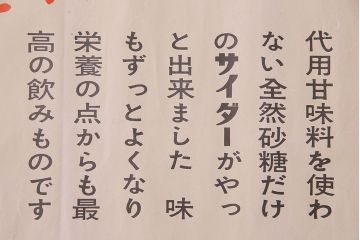 代用甘味料を使わ
ない全然砂糖だけ
のサイダーがやっ
と出来ました　味
もずっとよくなり
栄養の点からも最
高の飲みものです